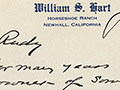 William S. Hart
HORSESHOE RANCH
NEWHALL, CALIFORNIA
Rudy
many years
owner of Som